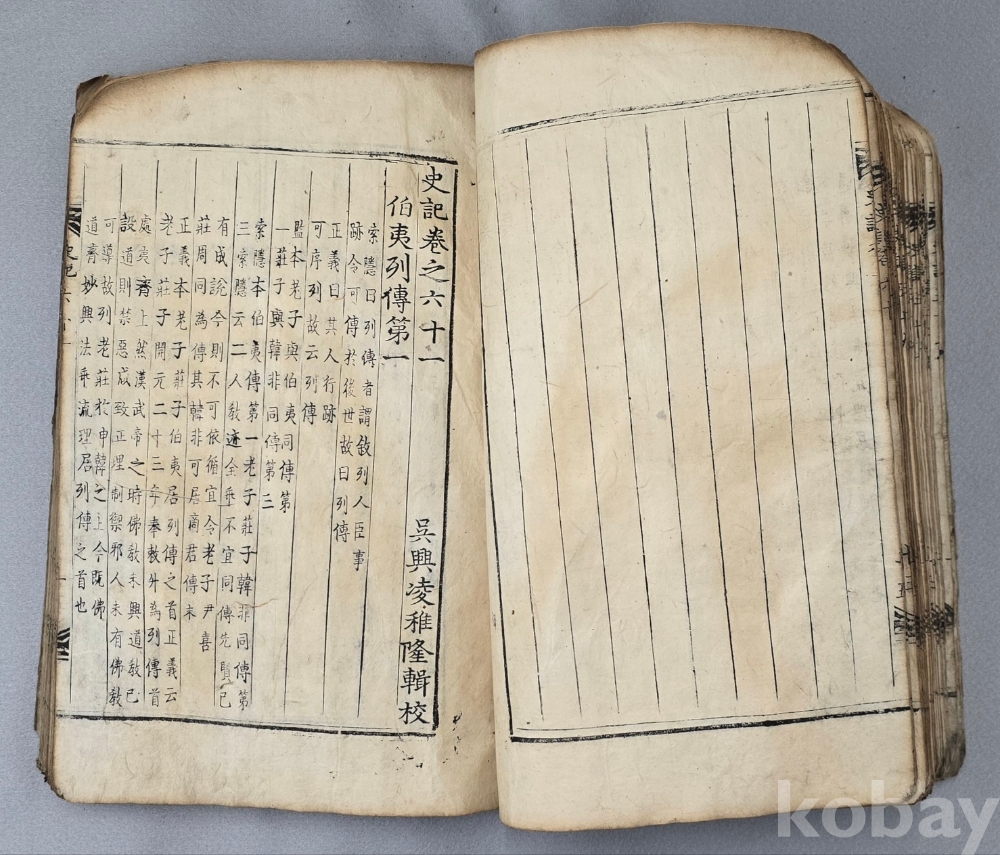 史記卷之六十一
吳興凌稚隆輯校
伯夷列傳第一
索隱曰列傳者謂敘列人臣事
跡令可傳於後世故曰列傳
正義曰其人行跡
可序列故云列傳
監本老子與伯夷同傳第
一莊子與韓非同傳第三
索隱本伯夷傳第一老子莊子韓非同傳第
三索隱云二人敎迹全乖不宜同傳先賢已
有成說今則不可依循宜令老子尹喜
莊周同為傳其韓非可居商君傳末
正義本老子莊子伯夷居列傳之首正義云
老子莊子開元二十三年奉敕升為列傳首
處夷齊上然漢武帝之時佛敎未興道敎已
設道則禁惡咸致正理制禦邪人未有佛敎
可導故列老莊於申韓之上今旣佛
道齊妙興法乖流理居列傳之首也
史記
kobay